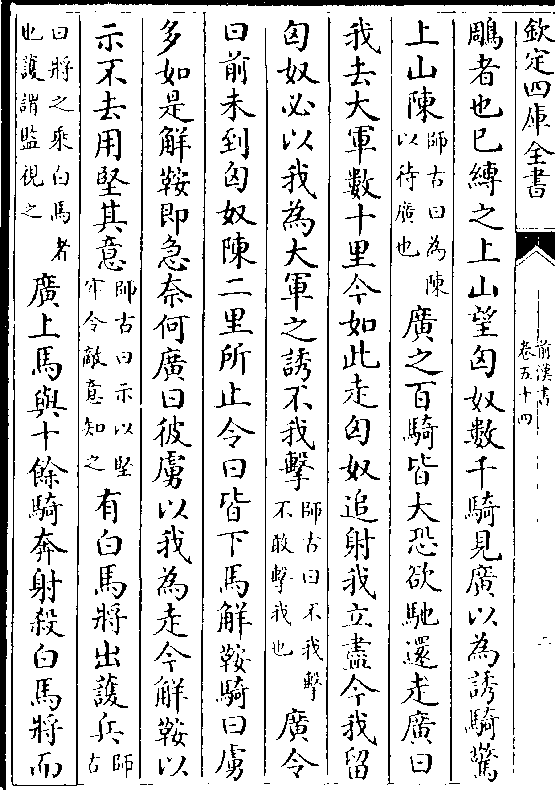 欽定四庫全書
前漢書
卷五十四
鵰者也已縛之上山望匈奴數千騎見廣以為誘騎驚
上山陳師古曰為陳以待廣也廣之百騎皆大恐欲馳還走廣曰
我去大軍數十里今如此走匈奴追射我立盡今我留
匈奴必以我為大軍之誘不我擊師古曰不我擊不敢擊我也廣令
曰前未到匈奴陳二里所止令曰皆下馬解鞍騎曰虜
多如是解鞍即急奈何廣曰彼虜以我為走今解鞍以
示不去用堅其意師古曰示以堅牢令敵意知之有白馬將出護兵師古
曰將之乘白馬者也護謂監視之廣上馬與十餘騎奔射殺白馬將而